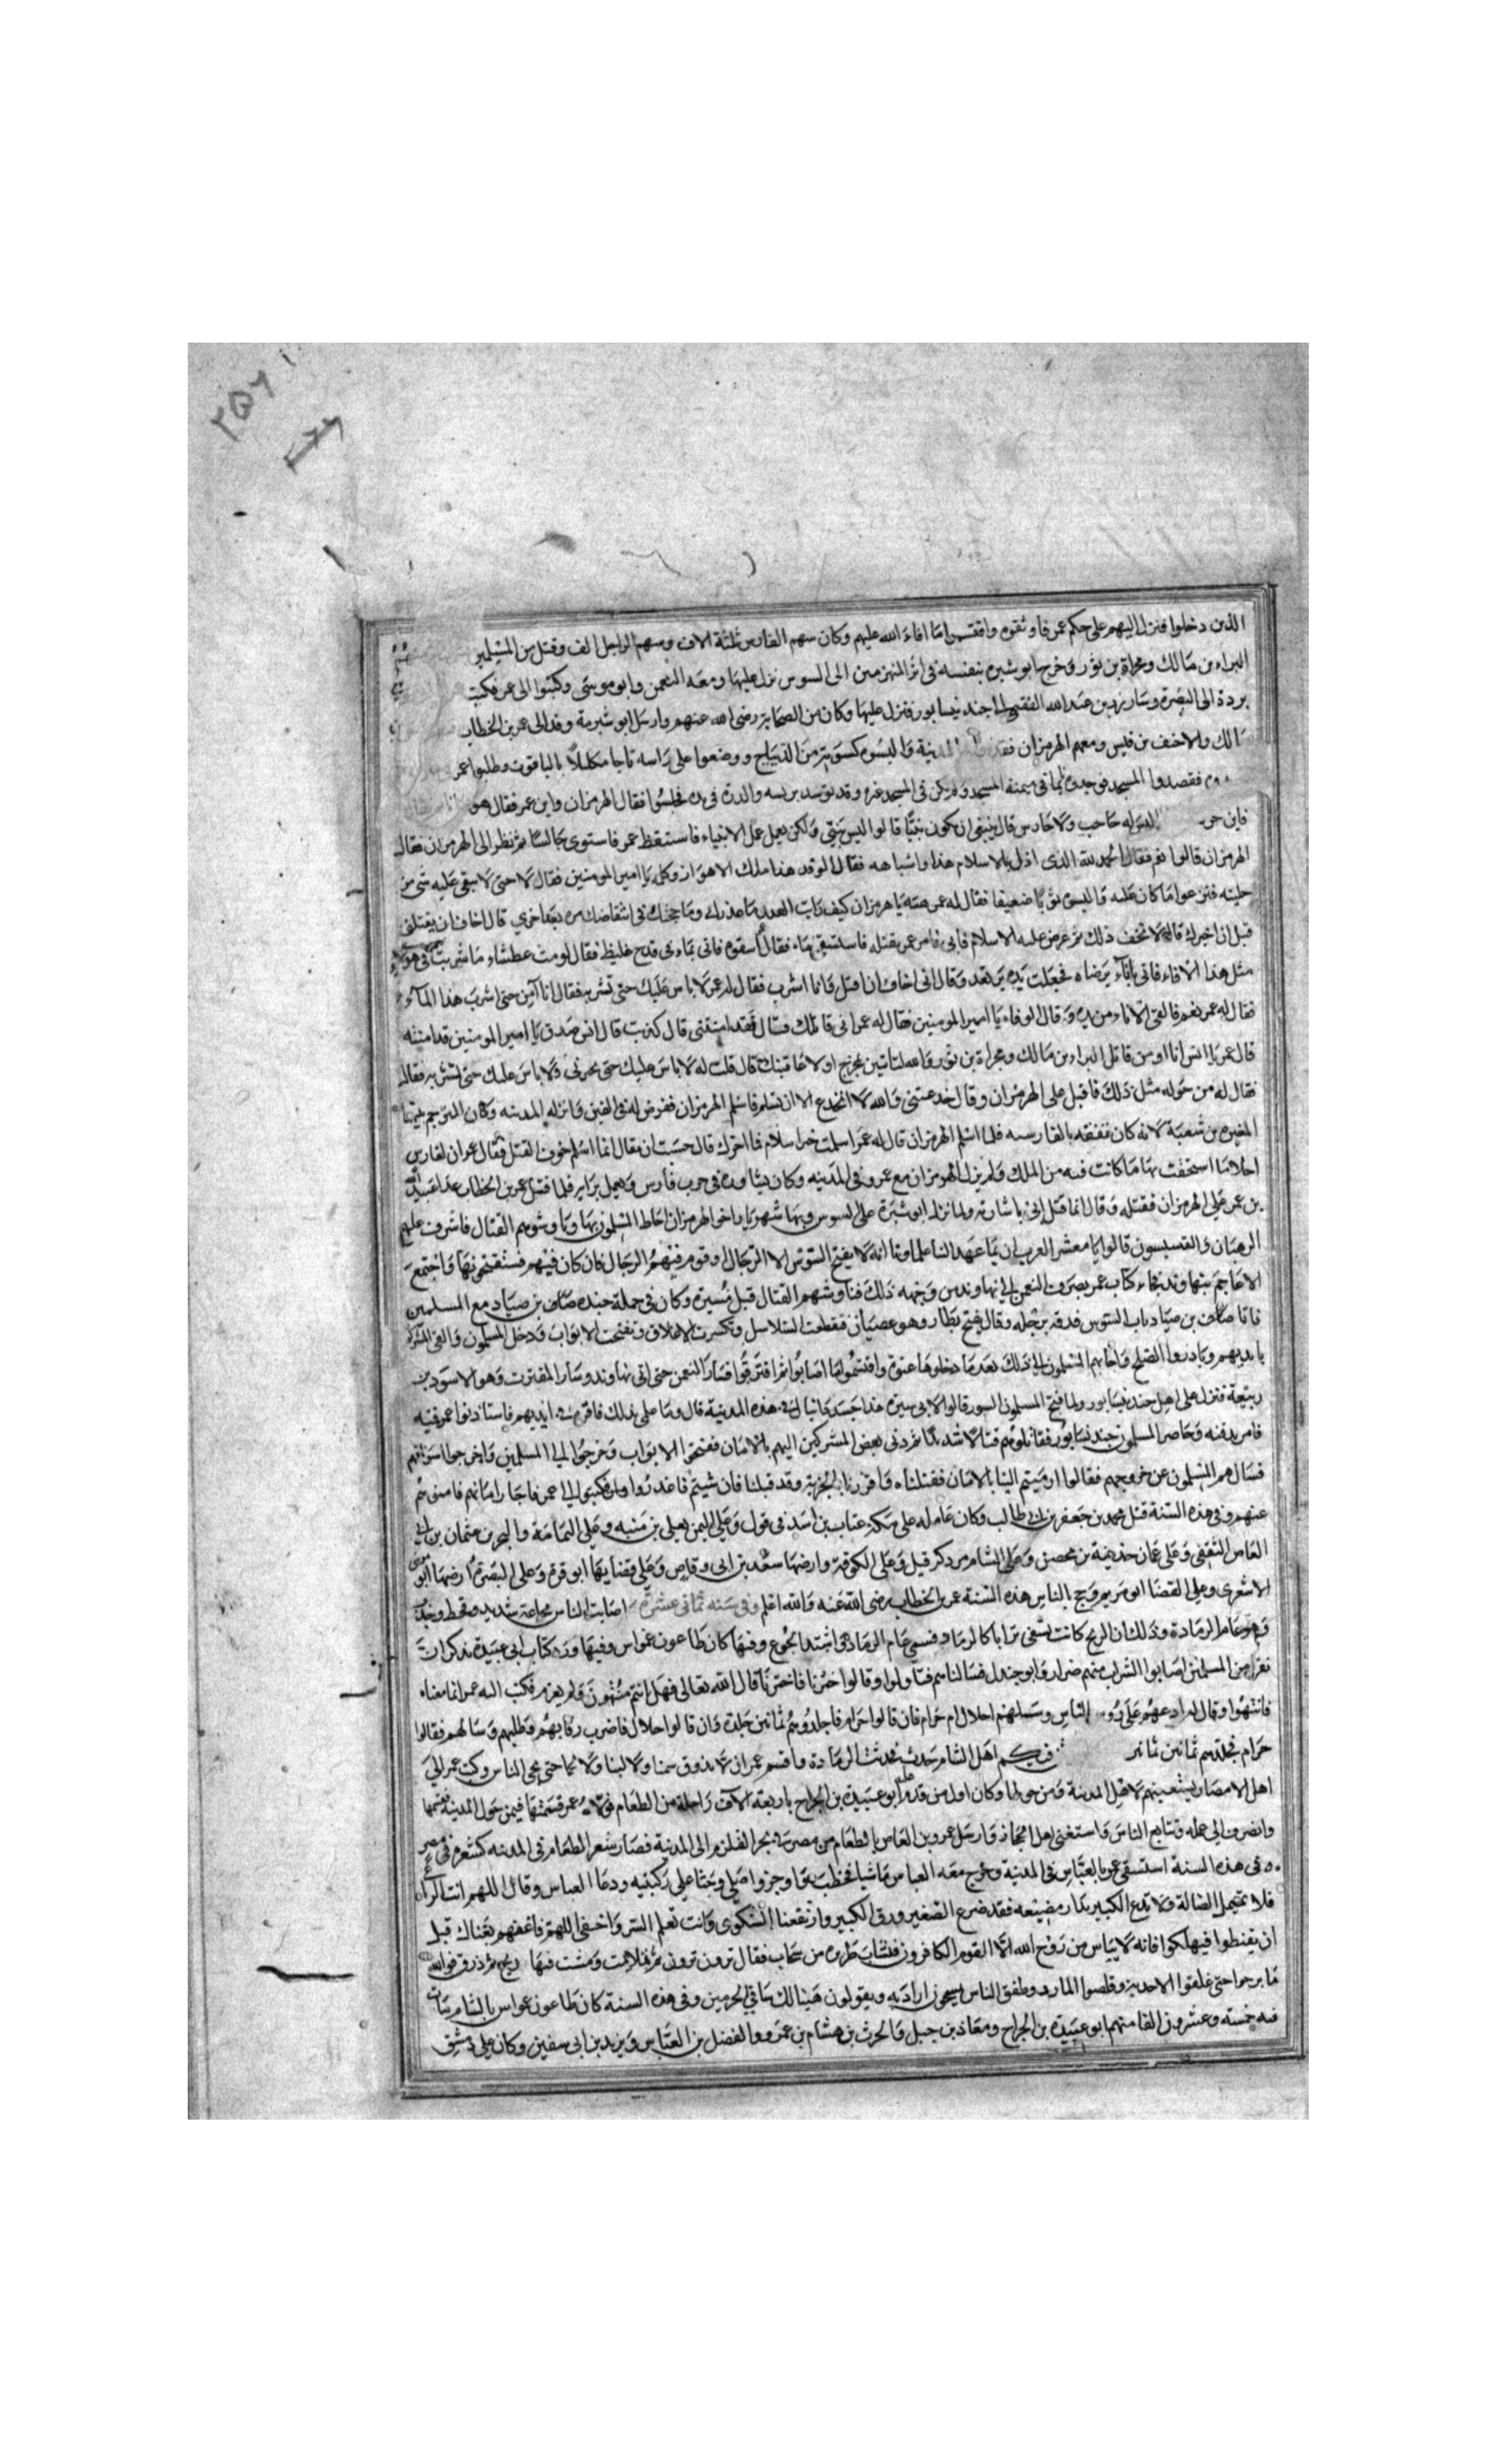 ٢٥٦
الذين دخلوا فنزل اليهم على حكم عمر فاوثقوه واقتسموا ما افاء الله عليهم وكان سهم الفارس ثلثة الاف وسهم الراجل الف وقتل من المسلمين
البراء بن مالك ومجراة بن ثور وخرج ابو سبره بنفسه فى اثر المنهزمين الى السوس نزل عليها ومعه النعمن وابو موسى وكتبوا الى عمر فكتب
بردة الى البصرة وسار زر بن عبد الله الفقيمى الى جند نيسابور فنزل عليها وكان من الصحابة رضى الله عنهم وارسل ابو سبرة وفدا الى عمر بن الخطاب
مالك والاحنف بن قيس ومعهم الهرمزان المدينة والبسوه كسوته من الديباج ووضعوا على راسه تاجا مكللا بالياقوت وطلبوا عمر
فقصدوا المسجد فوجدوه نائما فى ميمنة المسجد ولم يكن فى المسجد غيره وقد توسد برنسه والدرة فى يده فجلسوا فقال الهرمزان واين عمر فقال هو
فاين ليس له حاجب ولا حارس قال ينبغى ان يكون نبيا قالوا ليس بنبى ولكن يعمل عمل الانبياء فاستيقظ عمر فاستوى جالسا ثم نظر الى الهرمزان فقال
الهرمزان قالوا نعم فقال الحمد لله الذى اذل بالاسلام هذا واشباهه فقال الوفد هذا ملك الاهواز وكلمه يا امير المومنين فقال لا حتى لا يبقى عليه شى من
حليته فنزعوا ما كان عليه والبسوه ثوبا ضعيفا فقال له عمر هيه يا هرمزان كيف رايت الغدر ما عذرك وما حجتك فى انتقاضك مرة بعد اخرى قال اخاف ان يقتلنى
قبل ان اخبرك قال لا تخف ذلك ثم عرض عليه الاسلام فابى فامر عمر بقتله فاستسقى ماء فقال اسقوه فاتى بماء فى قدح غليظ فقال لو مت عطشا ما شربت فى
مثل هذا الاناء فاتى باناء يرضاه فجعلت يده ترتعد وقال انى اخاف ان اقتل وانا اشرب فقال له عمر لا باس عليك حتى تشربه فقال انا آمن حتى اشرب هذا المآء
فقال له عمر نعم فالقى الاناء من يده وقال الوفاء يا امير المومنين فقال له عمر انى قاتلك فقال فقد امنتنى قال كذبت قال انس صدق يا امير المومنين قد امنته
قال عمر يا انس انا اومن قاتل البراء بن مالك ومجراة بن ثور والله لتاتين بمخرج او لاعاقبنك قال قلت له لا باس عليك حتى تخبرنى ولا باس عليك حتى تشربه فقال
فقال له من حوله مثل ذلك فاقبل على الهرمزان وقال خدعتنى والله لا انخدع الا ان تسلم فاسلم الهرمزان ففرض له فى الفين وانزله المدينه وكان المترجم بينهما
المغيرة بن شعبة لانه كان يفقه بالفارسيه فلما اسلم الهرمزان قال له عمر اسلمت خير اسلام فما اخرك قال حسبت ان يقال انما اسلم خوف القتل فقال عمر ان لفارس
احلاما استحقت بها ما كانت فيه من الملك ولم يزل الهرمزان مع عمر فى المدينه وكان يشاوره فى حرب فارس ويعمل برايه فلما قتل عمر بن الخطاب عدا عبيد الله
بن عمر على الهرمزان فقتله وقال انما قتل ابى باشارته ولما نزل ابو سبرة على السوس وبها شهريار اخو الهرمزان احاط المسلمون بها وناوشوهم القتال فاشرف عليهم
الرهبان والقسيسون قالوا يا معشر العرب ان مما عهد الينا علماونا انه لا يفتح السوس الا الدجال او قوم فيهم الدجال فان كان فيهم فستفتحونها واجتمع
الاعاجم بنهاوند فجاء كتاب عمر بصرف النعمن الى نهاوند من وجهه ذلك فناوشهم القتال قبل مسيره وكان فى جملة جنده صاف بن صياد مع المسلمين
فاتا صاف بن صياد باب السوس فدقه برجله وقال انفتح بظار وهو غضبان فتقطعت السلاسل وتكسرت الاغلاق وتفتحت الابواب ودخل المسلمون والقى المشركون
بايديهم ونادوا الصلح فاجابهم المسلمون الى ذلك بعد ما دخلوها عنوة واقتسموا ما اصابوا ثم افترقوا فسار النعمن حتى اتى نهاوند وسار المقترب وهو الاسود بن
ربيعة فنزل على اهل جند نيسابور ولما فتح المسلمون السوس قالوا لابى سبرة هذا جسد دانيال فى هذه المدينة قال وما على بذلك فاقره فى ايديهم فاستاذنوا عمر فيه
فامر بدفنه وحاصر المسلمون جند نيسابور فقاتلوهم قتالا شديدا ثم رمى بعض المشركين اليهم بالامان ففتحوا الابواب وخرجوا الى المسلمين واخرجوا اسواقهم
فسالهم المسلمون عن خروجهم فقالوا ارميتم الينا بالامان فقبلناه واقررنا بالجزية وقد قبلنا فان شيتم فاغدروا فكتبوا الى عمر فاجاز امانهم فامنوهم
عنهم وفى هذه السنة قتل محمد بن جعفر بن ابى طالب وكان عامله على مكة عتاب بن اسد فى قول وعلى اليمن يعلى بن منبه وعلى اليمامة والبحرين عثمان بن ابى
العاص الثقفى وعلى عمان حذيفة بن محصن وعلى الشام من ذكر قبل وعلى الكوفة وارضها سعد بن ابى وقاص وعلى قضايها ابو قرة وعلى البصرة وارضها ابو موسى
الاشعرى وعلى القضا ابو مريم وحج بالناس هذه السنة عمر بن الخطاب رضى الله عنه والله اعلم وفى سنه ثمانى عشرة اصابت الناس مجاعة شديده وقحط وجدب
وهو عام الرمادة وذلك ان الريح كانت تسفى ترابا كالرماد فسمى عام الرمادة واشتد الجوع وفيها كان طاعون عمواس وفيها ورد كتاب ابى عبيدة يذكر ان
نفرا من المسلمين اصابوا الشراب منهم ضرار وابو جندل فسالناهم فتاولوا وقالوا خيرنا فاخترنا قال الله تعالى فهل انتم منتهون ولم يعزم فكتب اليه عمر انما معناه
فانتهوا وقال له ادعهم على رؤوس الناس وسلهم احلال ام حرام فان قالوا حرام فاجلدوهم ثمانين جلدة وان قالوا حلال فاضرب رقابهم فطلبهم وسالهم فقالوا
حرام فجلدهم ثمانين ثمانين اهل الشام حدث فحدثت الرمادة واقسم عمر ان لا يذوق سمنا ولا لبنا ولا لحما حتى يحيى الناس وكتب عمر الى
اهل الامصار يستعينهم لاهل المدينة ومن حولها وكان اول من قدم عليه ابو عبيدة بن الجراح باربعة الاف راحلة من الطعام فولاه عمر قسمتها فيمن حول المدينة فقسمها
وانصرف الى عمله وتتابع الناس واستغنى اهل الحجاز وارسل عمرو بن العاص بالطعام من مصر فى بحر القلزم الى المدينة فصار سعر الطعام فى المدينه كسعره فى مصر
وفى هذه السنة استسقى عمر بالعباس فى المدينة وخرج معه العباس ماشيا فخطب واوجز وصلى وجثا على ركبتيه ودعا العباس وقال اللهم انت الراع
فلا تهمل الضالة ولا تدع الكبير بدار مضيعه فقد ضرع الصغير ورق الكبير وارتفعت الشكوى وانت تعلم السر واخفى اللهم فاغثهم بغناك قبل
ان يقنطوا فيهلكوا فانه لا يياس من روح الله الا القوم الكافرون فنشات طريره من سحاب فقال ترون ترون ثم تلامت ومشت فيها ريح ثم ذرت فوالله
ما برحوا حتى علقوا الاحذية وقلصوا المازر وطفق الناس بالعباس يمسحون اردانه ويقولون هنيا لك ساقى الحرمين وفى هذه السنة كان طاعون عمواس بالشام مات
فيه خمسة وعشرون الفا منهم ابو عبيدة بن الجراح ومعاذ بن جبل والحرث بن هشام بن عمرو والفضل بن العباس ويزيد بن ابى سفين وكان على دمشق